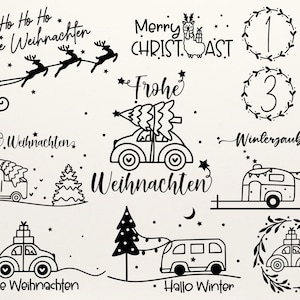 Ho Ho Ho
Weihnachten
Merry
CHRISTMAST
1
Frohe
3
Weihnachten
Weihnachten
Weihnachten
Hallo Winter